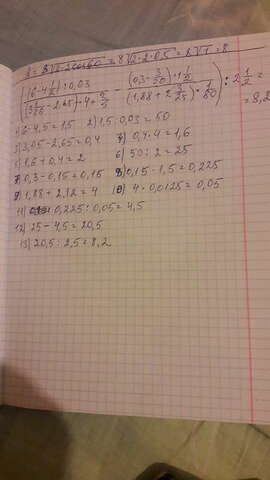 ((6-4 1/2):0,03 / (3 1/20 - 2,65)·4+2/5 - (0,3-3/20)·1 1/2 / (1,88+2 3/25)·1/80) : 2 1/2 =
= 8,2
1) 6-4,5=1,5 2) 1,5:0,03=50
3) 3,05-2,65=0,4 4) 0,4·4=1,6
5) 1,6+0,4=2 6) 50:2=25
7) 0,3-0,15=0,15 8) 0,15·1,5=0,225
9) 1,88+2,12=4 10) 4·0,0125=0,05
11) 0,225:0,05=4,5
12) 25-4,5=20,5
13) 20,5:2,5=8,2